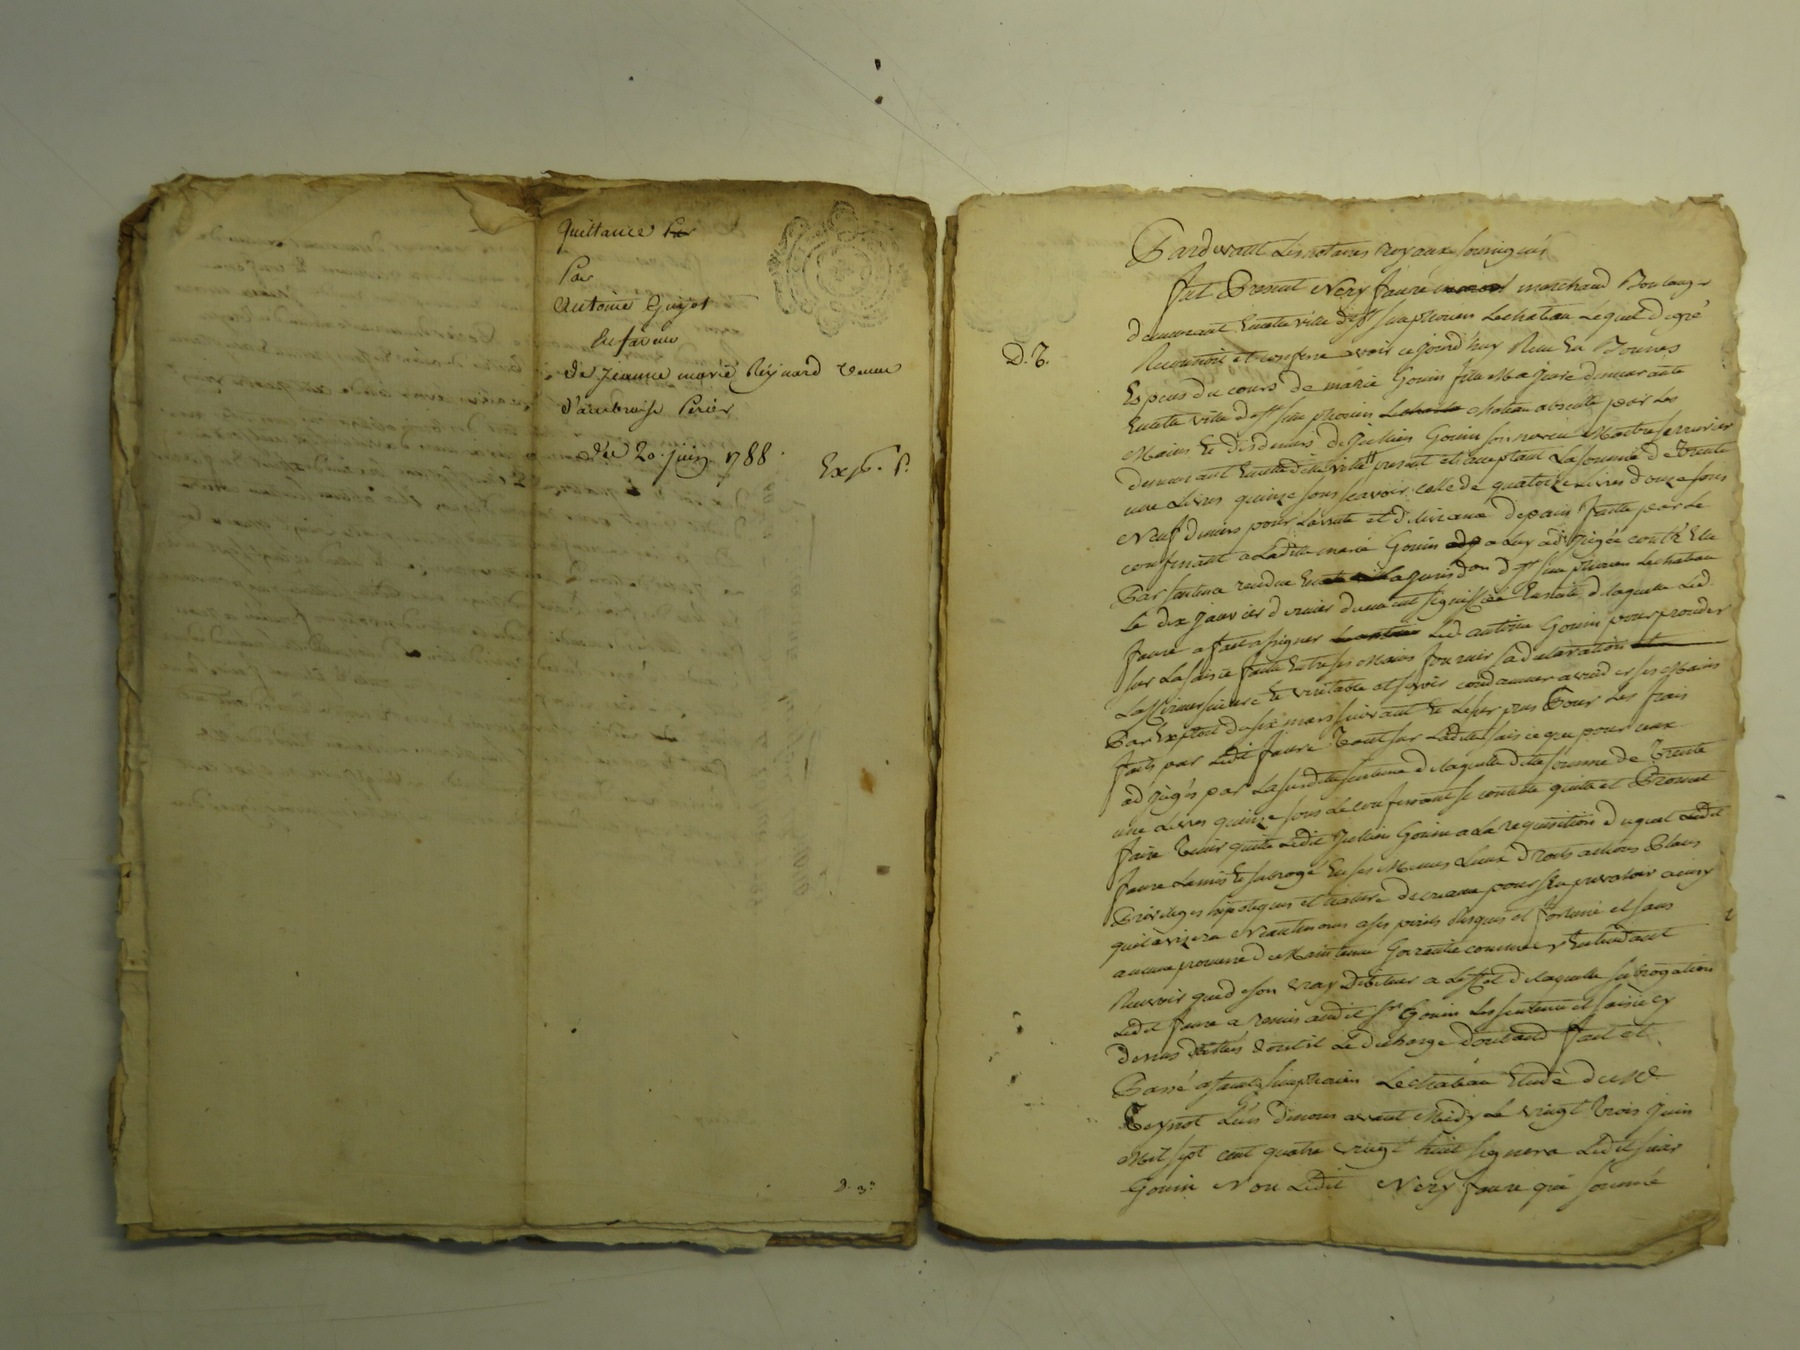 Quittance
Par
Antoine Guyot
En faveur
de Jeanne marie Reynard veuve
d'ambroise Perier
du 20. juin 1788.
Exp.
D. 3.
D. T.
Pardevant Les notaires royaux soussignés
fut Present Nery faure marchand Boulang
demeurant En cette ville de st simphorien Le chateau Lequel de gré
Reconnoit et confesse avoir ce jourd'huy Reçu En Bonnes
Espèces du cours de marie Gouin fille Majeure demeurante
En cette ville de st simphorien chateau absente par les
Mains Et des deniers de Jullien Gouin son neveu Maitre serrurier
demeurant En cette ditte ville present et acceptant La somme de Trente
une Livres quinze sous sçavoir celle de quatorze Livres douze sous
Neuf deniers pour La vente et delivrance de pain faitte par Le
confessant a Laditte marie Gouin a Luy adjugée contre Elle
Par sentence rendue En la jurisd.on de st simphorien Le chateau
Le dix janvier dernier duement signiffiée Ensuite de laquelle Led.
faure a fait assigner Led antoine Gouin pour proceder
sur La saisie faitte Entre ses Mains fournir sa declaration
L'affirmer sincere Et veritable et se voir condamner a vuider ses Mains
Par Exploit du six mars suivant Et Le surplus Pour Les frais
faits par Ledit faure Tant sur Laditte saisie que pour ceux
adjugés par La susditte sentence de laquelle ditte somme de Trente
une Livres quinze sous Le confessant se contente quitte et Promet
faire Tenir quitte Ledit Jullien Gouin a La requisition duquel Ledit
faure L'a mis Et subrogé En ses Memes Lieux droits actions Places
Privileges hipoteques et nature de creance pour s'En prevaloir ainsy
qu'il avizera Neantmoins a ses perils Risques et fortune et sans
aucune promesse de Maintenue Garentie comme n'Entendant
Recevoir que de son vray Debiteur a L'effet de laquelle subrogation
Ledit faure a remis audit sr Gouin Les sentence et saisie cy
dessus dont il Le decharge d'autant fait et
Passé a saint simphorien Le chateau Etude de Me
avant Midy Le vingt trois juin
Mil sept cent quatre vingt huit signera Ledit sieur
Gouin Non Ledit Nery faure qui sommé